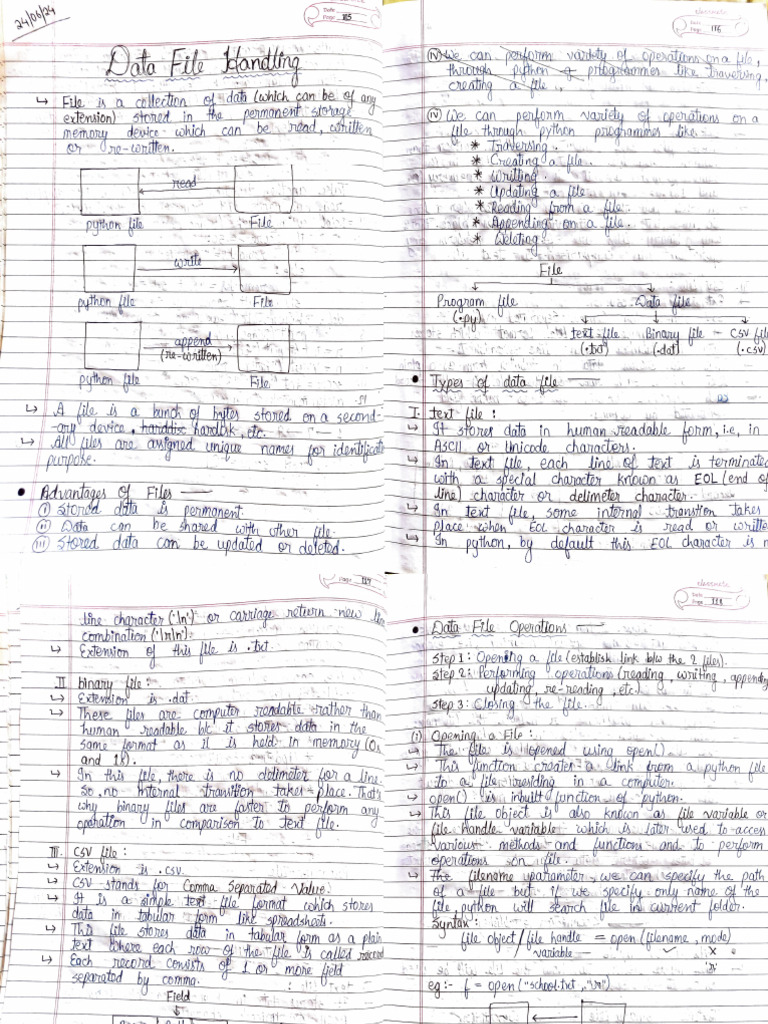 24/06/24
Date
Page 115
Data File Handling
↳ File is a collection of data (which can be of any
extension) stored in the permanent storage
memory device which can be read, written
or re-written.
read
python file File
write
python file File
append
(re-written)
python file File
↳ A file is a bunch of bytes stored on a second-
ary device, harddisc harddisk, etc.
↳ All files are assigned unique names for identificatio
purpose.
• Advantages of Files —
(i) Stored data is permanent.
(ii) Data can be shared with other file.
(iii) Stored data can be updated or deleted.
classmate
Date
Page 116
(iv) We can perform variety of operations on a file,
through python programmes like traversing,
creating a file.
(iv) We can perform variety of operations on a
file through python programmes like.
* Traversing.
* Creating a file.
* Writting.
* Updating a file
* Reading from a file.
* Appending on a file.
* Deleting.
File
Program file Data file
(.py)
text file Binary file CSV fil
(.txt) (.dat) (.csv)
• Types of data file —
I. text file :
↳ It stores data in human readable form, i.e, in
ASCII or Unicode characters.
↳ In text file, each line of text is terminated
with a special character known as EOL (end of
line) character or delimeter character.
↳ In text file, some internal transtion takes
place when EOL character is read or writte
↳ In python, by default this EOL character is n
Page 117
line character ('\n') or carriage return new line
combination ('\r\n').
↳ Extension of this file is .txt
II binary file :
↳ Extension is .dat
↳ These files are computer readable rather than
human readable b/c it stores data in the
same format as it is held in memory (0s
and 1s).
↳ In this file, there is no delimeter for a line
so, no internal transition takes place. That's
why binary files are faster to perform any
operation in comparison to text file.
III CSV file :
↳ Extension is .csv
↳ CSV stands for Comma Separated Value.
↳ It is a simple text file format which stores
data in tabular form like spreadsheets.
↳ This file stores data in tabular form as a plain
text where each row of the file is called record
↳ Each record consists of 1 or more field
separated by comma.
Field
classmate
Date
Page 118
• Data File Operations —
Step 1 : Opening a file (establish link b/w the 2 files).
Step 2 : Performing operations (reading, writing, appending
updating, re-reading, etc.)
Step 3 : Closing the file.
(i) Opening a File :
↳ The file is opened using open().
↳ This function creates a link from a python file
to a file residing in a computer.
↳ open() is inbuilt function of python.
↳ This file object is also known as file variable or
file handle variable which is later used to access
various methods and functions and to perform
operations on file.
↳ The filename parameter, we can specify the path
of a file but if we specify only name of the
file, python will search file in current folder.
Syntax :
file object / file handle = open (filename, mode)
variable ✓ X
'r'
eg :- f = open ("school.txt", "r")